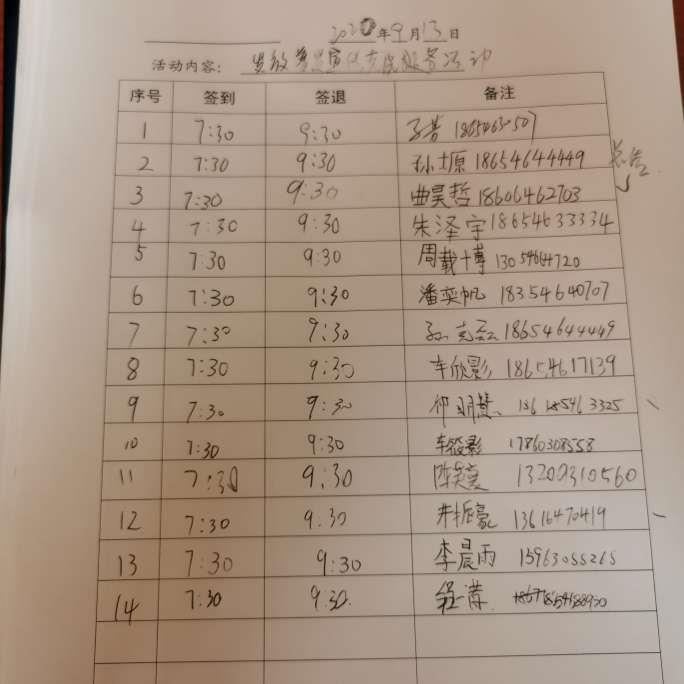 2020年9月13日
活动内容： 服务活动
序号 签到 签退 备注
1 7:30 9:30
2 7:30 9:30 孙士原 18654644449
3 7:30 9:30 曲昊哲 18606462703
4 7:30 9:30 朱泽宇 18654633334
5 7:30 9:30 周载博 13054644720
6 7:30 9:30 潘奕帆 18354640707
7 7:30 9:30 18654644449
8 7:30 9:30 车欣影 18654617139
9 7:30 9:30 祁明慧
10 7:30 9:30 车筱影 17860308558
11 7:30 9:30
12 7:30 9:30 井振豪 13616470419
13 7:30 9:30 李晨雨 15963055265
14 7:30 9:30